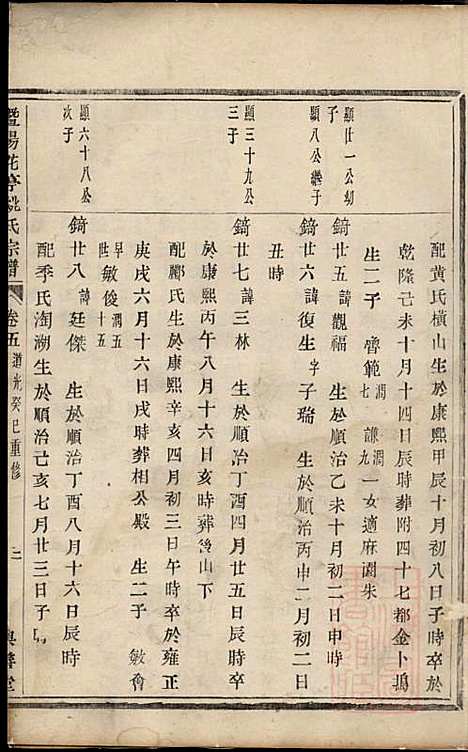 顯廿一公幼子
顯八公繼子
顯三十九公三子
顯六十八公次子
配黄氏橫山生於康熙甲辰十月初八日子時卒於
乾隆己未十月十四日辰時葬附四十七都金卜塢
生二子 啓範潤七 謙潤九 一女適麻園朱
錡廿五諱觀福 生於順治乙未十月初二日申時
錡廿六諱復生字子瑞 生於順治丙申二月初二日
丑時
錡廿七諱三林 生於順治丁酉四月廿五日辰時卒
於康熙丙午八月十六日亥時葬後山下
配酈氏生於康熙辛亥四月初三日午時卒於雍正
庚戌六月十六日戌時葬相公殿 生二子 敏脩早世 敏俊潤五十五
錡廿八諱廷傑 生於順治丁酉八月十六日辰時
配季氏洵湖生於順治己亥七月廿三日子
暨陽花亭姚氏宗譜
卷五
道光癸巳重修
二